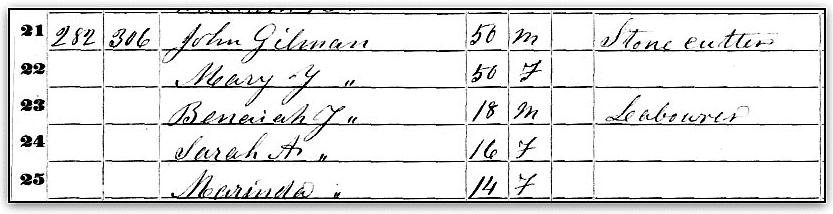 21 282 306 John Gilman 50 M Stone cutter
22 Mary Y " 50 F
23 Benaiah Y " 18 M Labourer
24 Sarah A " 16 F
25 Marinda " 14 F